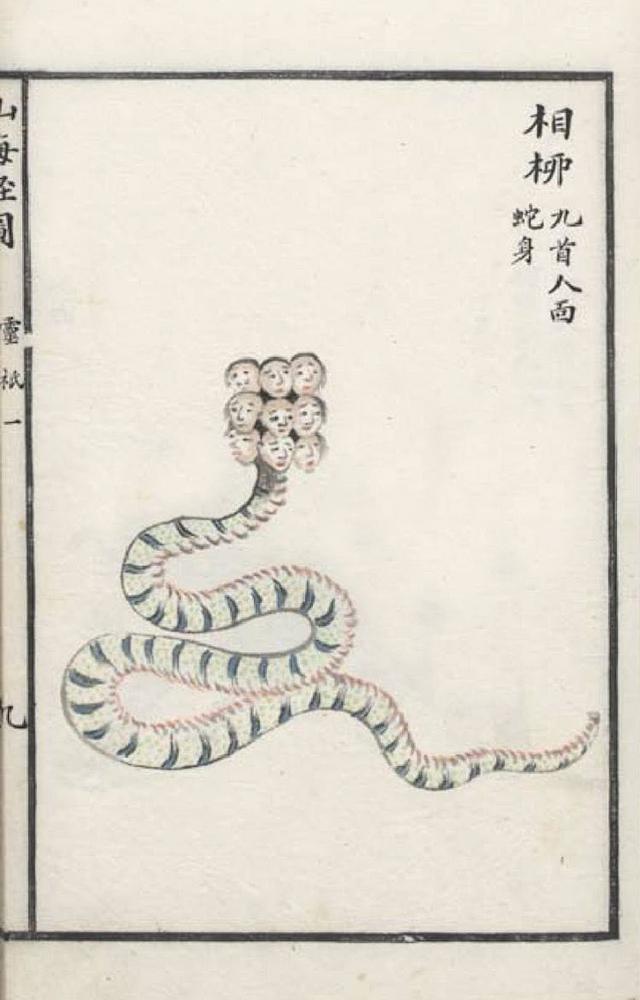 相柳
九首人面
蛇身
山海經圖
靈祇一
九